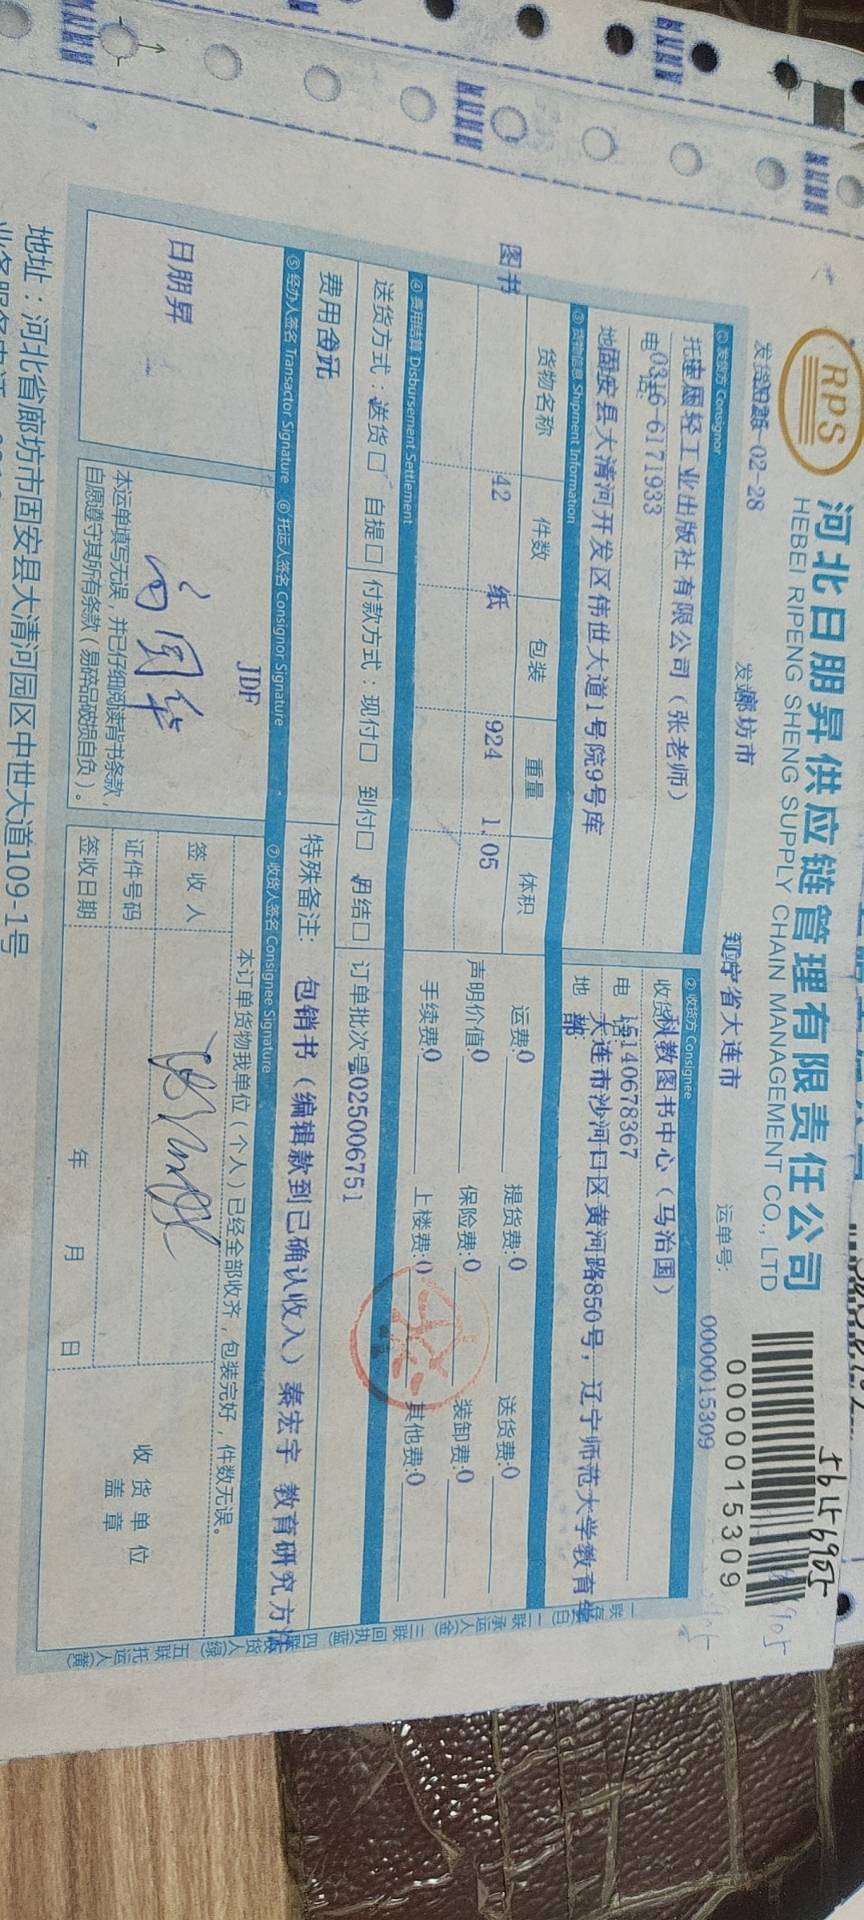 RPS
河北日朋昇供应链管理有限责任公司
HEBEI RIPENG SHENG SUPPLY CHAIN MANAGEMENT CO., LTD
56156905
0000015309
运单号:
0000015309
02-28
廊坊市
辽宁省大连市
① 发货方 Consignor
② 收货方 Consignee
轻工业出版社有限公司（张老师）
科教图书中心（马治国）
0316-6171933
15140678367
固安县大清河开发区伟世大道1号院9号库
大连市沙河口区黄河路850号，辽宁师范大学教育学部
③ 货物信息 Shipment Information
货物名称
件数
包装
重量
体积
图书
42
纸
924
1.05
运费:0
提货费:0
送货费:0
声明价值:0
保险费:0
装卸费:0
手续费:0
上楼费:0
其他费:0
④ 费用结算 Disbursement Settlement
送货方式：送货□ 自提□
付款方式：现付□ 到付□ 月结□
订单批次号2025006751
费用合计
特殊备注：
包销书（编辑款到已确认收入）秦宏宇 教育研究方法
⑤ 经办人签名 Transactor Signature
⑥ 托运人签名 Consignor Signature
⑦ 收货人签名 Consignee Signature
日朋昇
JDF
本运单填写无误，并已仔细阅读背书条款，
自愿遵守其所有条款（易碎品破损自负）。
本订单货物我单位（个人）已经全部收齐，包装完好，件数无误。
签收人
证件号码
签收日期
年 月 日
收货单位
盖章
地址：河北省廊坊市固安县大清河园区中世大道109-1号